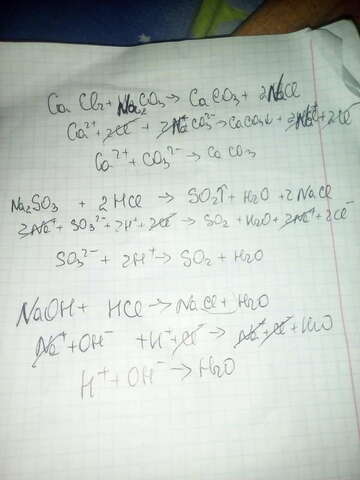 CaCl2 + Na2CO3 → CaCO3 + 2NaCl
Ca²⁺ + 2Cl⁻ + 2Na⁺ CO3²⁻ → CaCO3↓ + 2Na⁺ + 2Cl
Ca²⁺ + CO3²⁻ → CaCO3
Na2SO3 + 2HCl → SO2↑ + H2O + 2NaCl
2Na⁺ + SO3²⁻ + 2H⁺ + 2Cl⁻ → SO2 + H2O + 2Na⁺ + 2Cl⁻
SO3²⁻ + 2H⁺ → SO2 + H2O
NaOH + HCl → NaCl + H2O
Na⁺ + OH⁻ + H⁺ + Cl⁻ → Na⁺ + Cl⁻ + H2O
H⁺ + OH⁻ → H2O